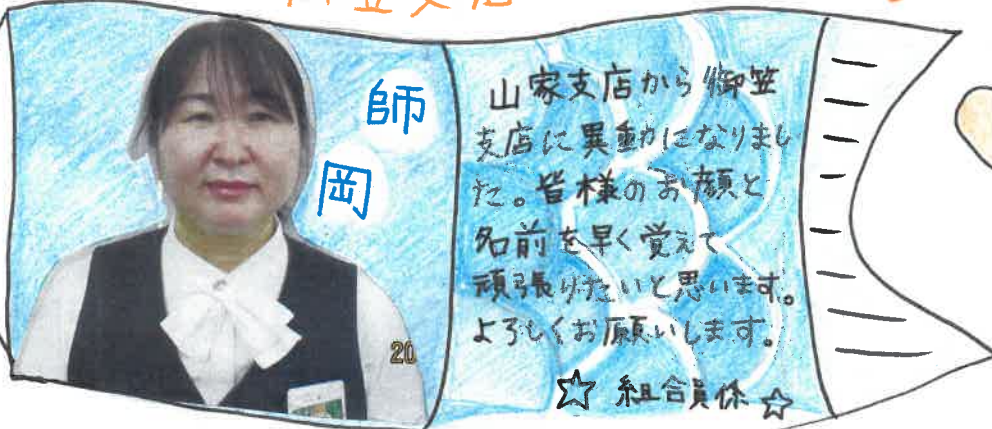 師
岡
山家支店から御笠
支店に異動になりまし
た。皆様のお顔と
名前を早く覚えて
頑張りたいと思います。
よろしくお願いします。
☆ 組合員係 ☆
20